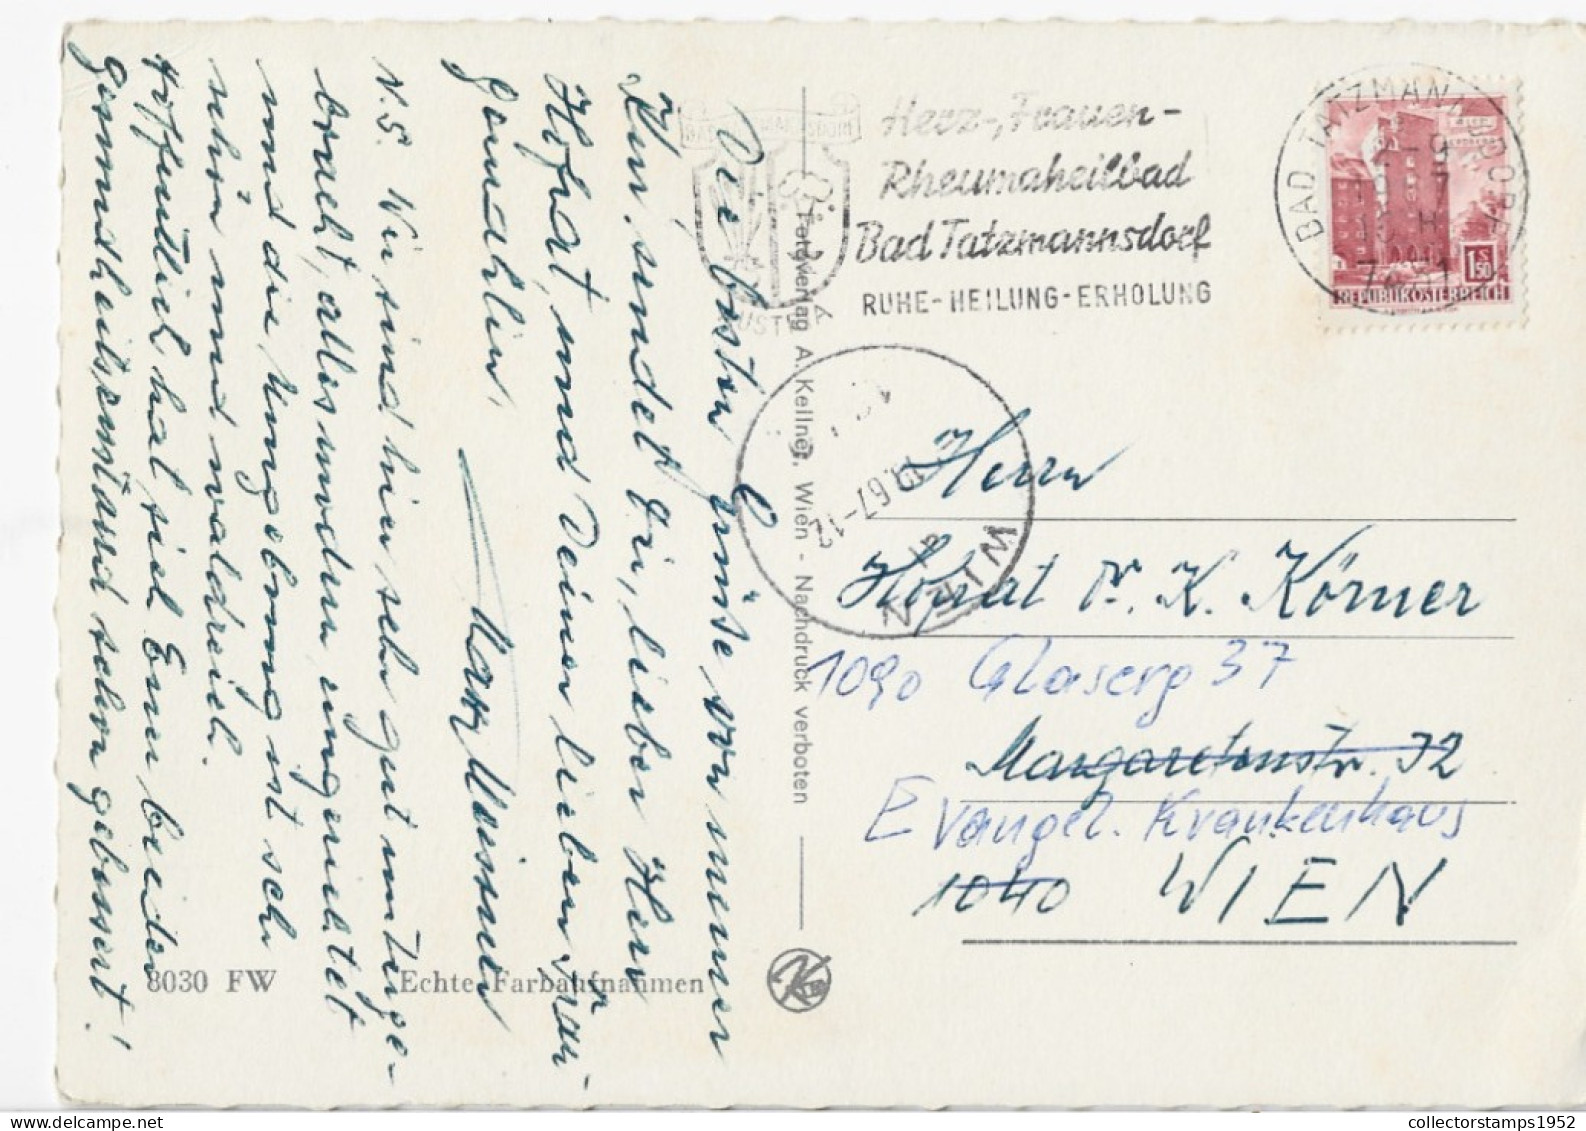 Die besten Grüße von unserer
Kur, sendet Dir, lieber Herr
Hofrat, und Deiner lieben Frau
Gemahlin,
N.S. Wir sind hier sehr gut unterge-
bracht, alles modern eingerichtet
und die Umgebung ist sehr
schön und waldreich.
Hoffentlich hat sich Euer beider
Gesundheitszustand schon gebessert!
8030 FW
Echte Farbaufnahmen
Fotoverlag A. Kellner, Wien - Nachdruck verboten
Herz-, Frauen-
Rheumaheilbad
Bad Tatzmannsdorf
RUHE-HEILUNG-ERHOLUNG
BAD TATZMANNSDORF
REPUBLIK ÖSTERREICH
WIEN
Herrn
Hofrat Dr. K. Körner
1090 Glaserg 37
Margaretenstr. 32
Evangel. Krankenhaus
1040 WIEN
collectorstamps1952